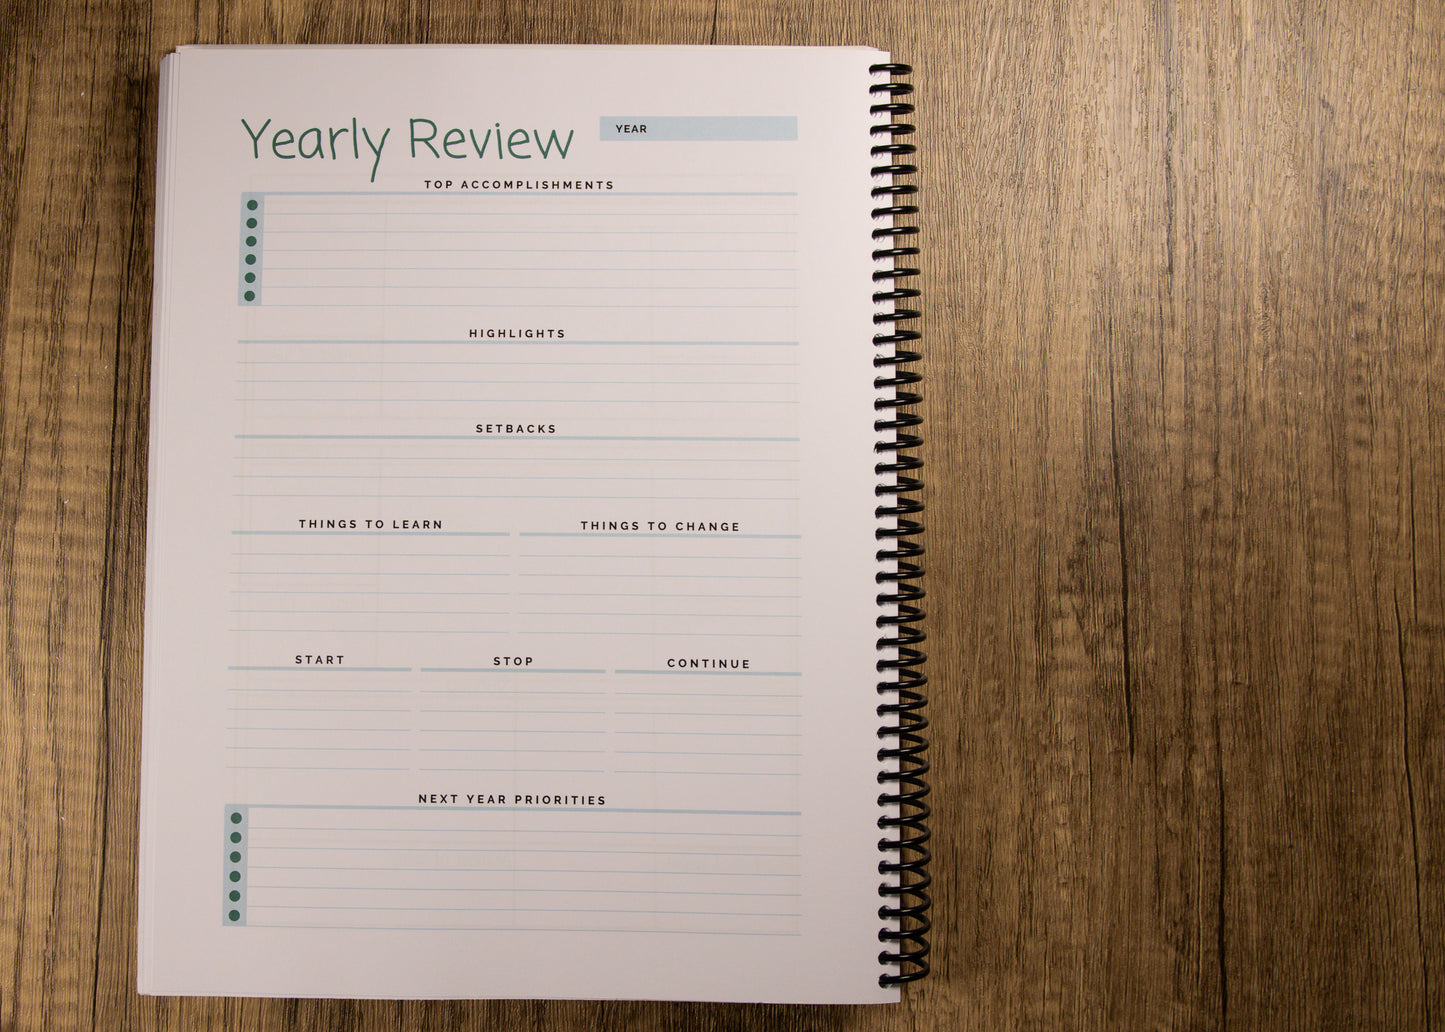 Yearly Review
YEAR
TOP ACCOMPLISHMENTS
HIGHLIGHTS
SETBACKS
THINGS TO LEARN
THINGS TO CHANGE
START
STOP
CONTINUE
NEXT YEAR PRIORITIES